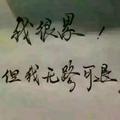 我狠累！
但我无路可退